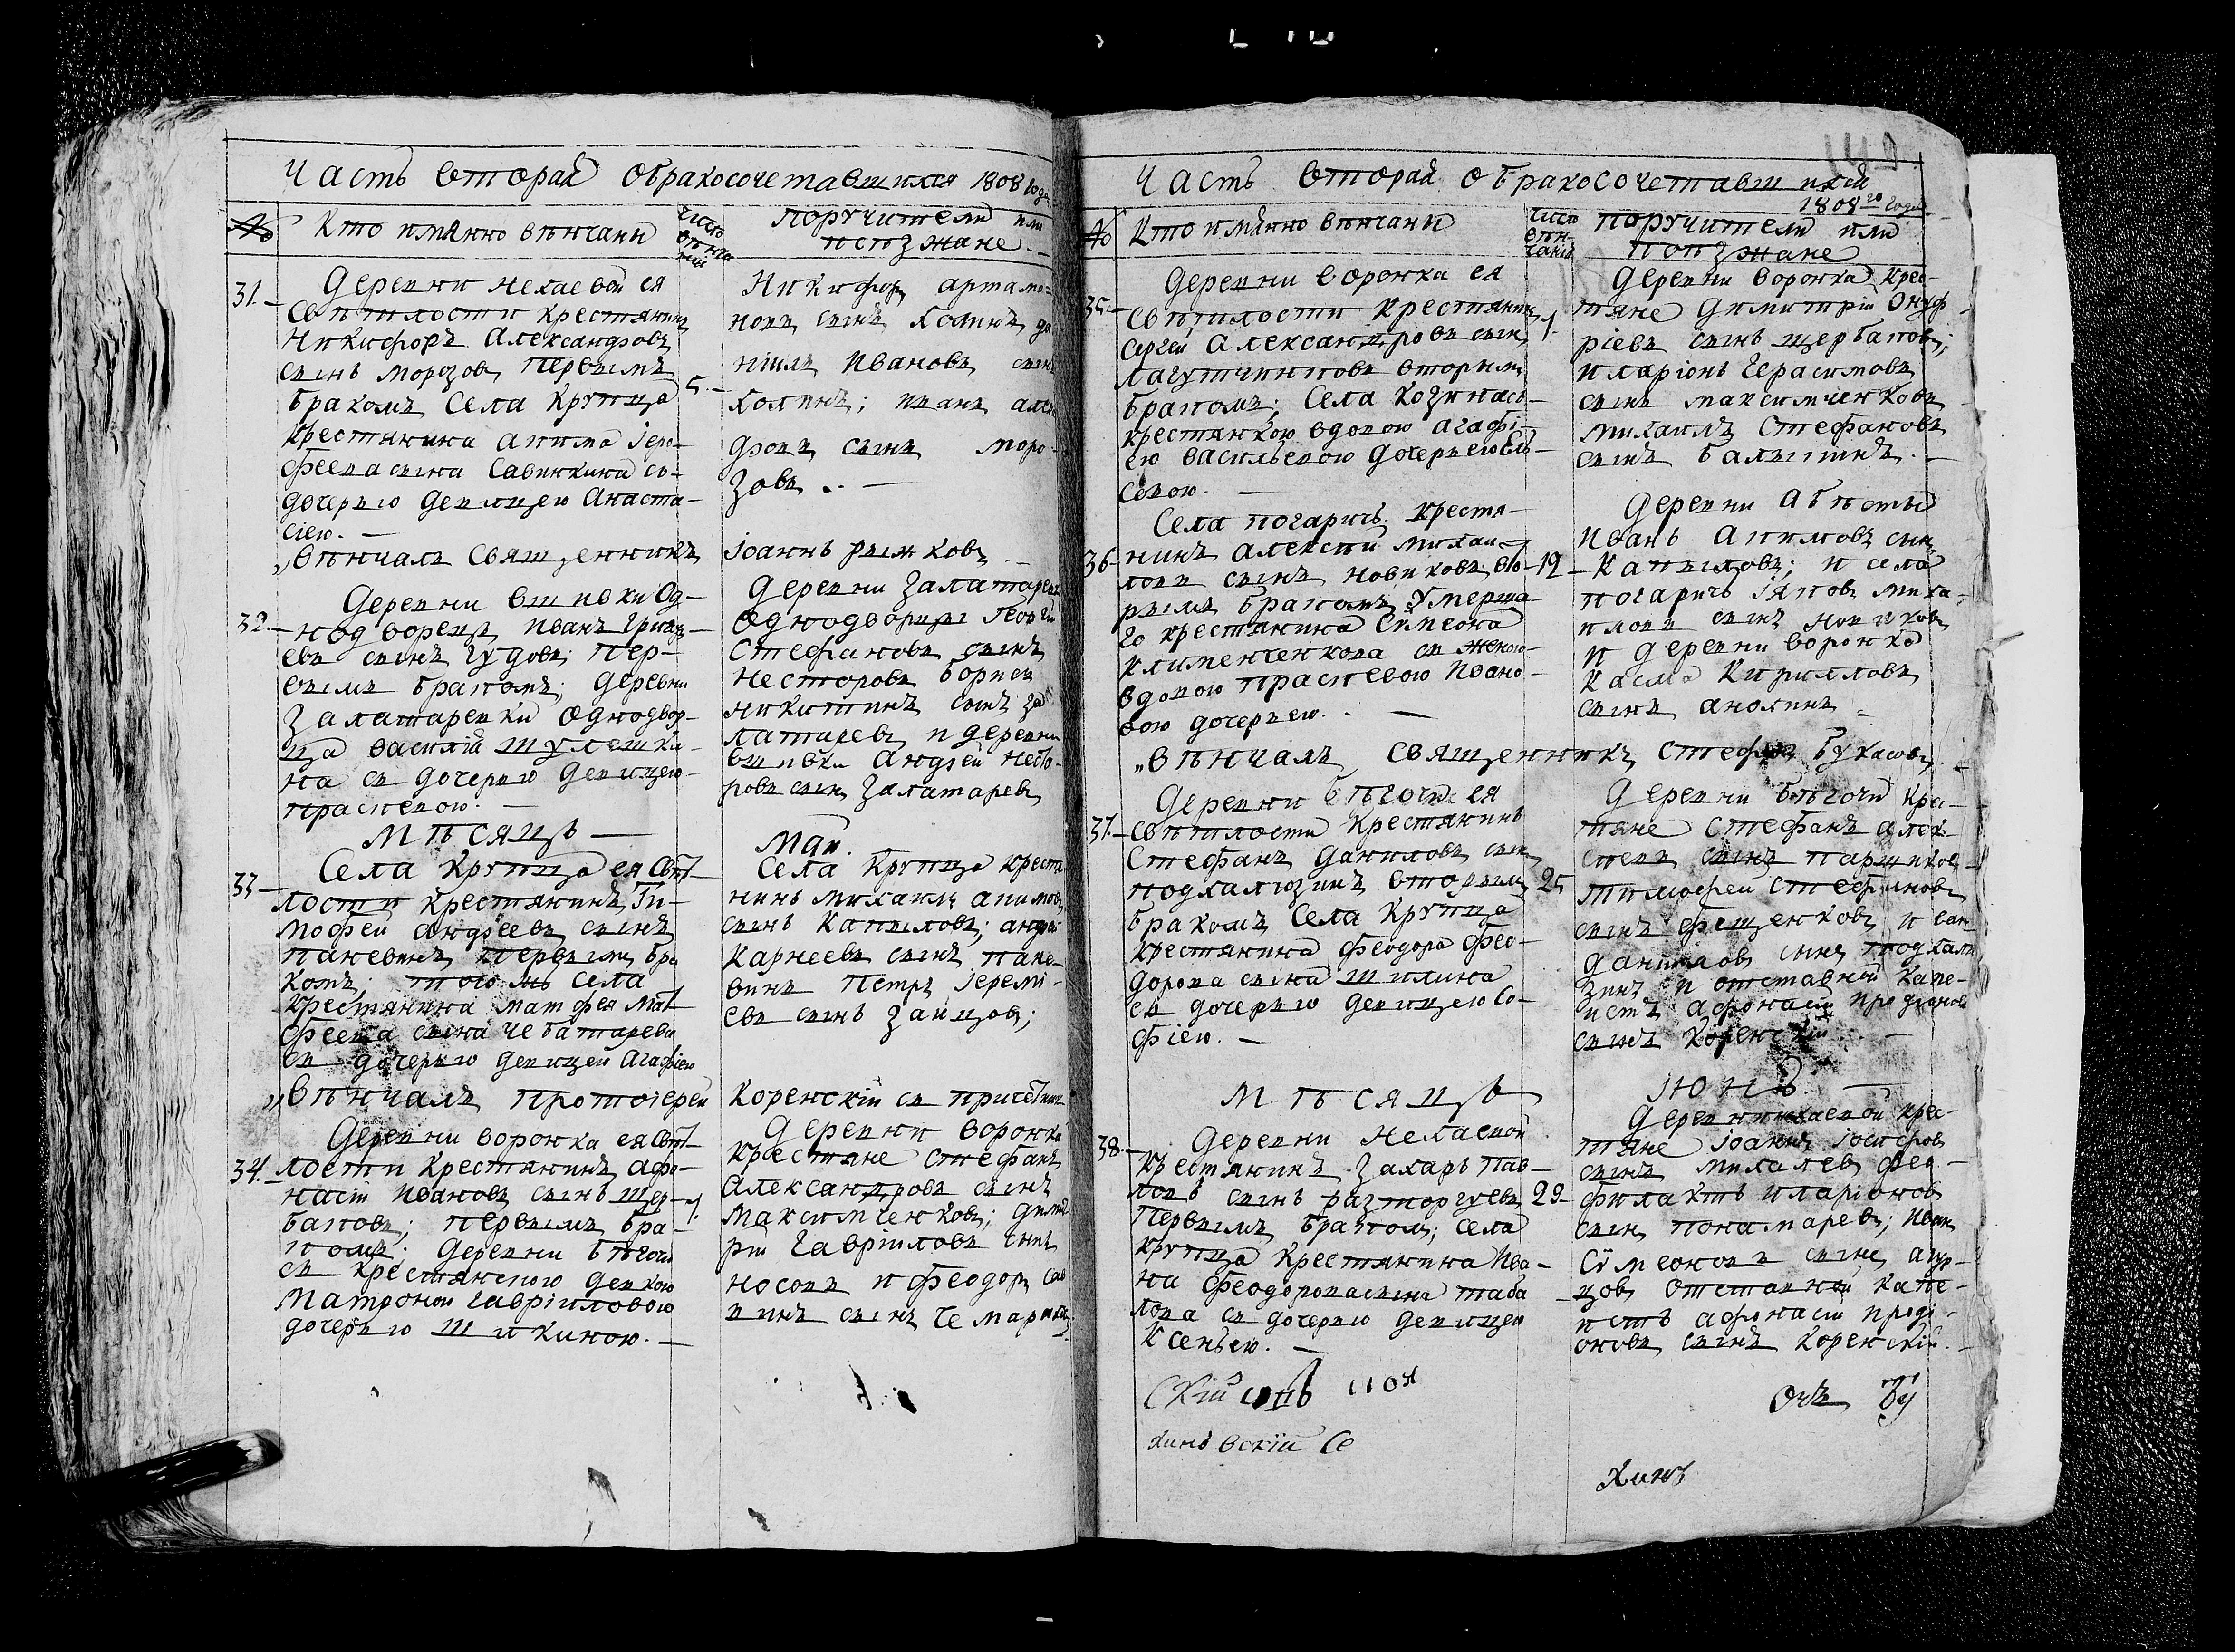 Часть вторая обракосочетавшихся 1808 года
№
Кто имянно венчаны
число венчаний
поручители или
поезжане
31.
Деревни нехаевой ея
светлости крестянинъ
Никифоръ Александровъ
сынъ морозовъ первымъ
бракомъ села Крупца
крестянина акима іеро-
феева сына савинкина съ
дочерью девицею анаста-
сіею.
5
Никифоръ артамо-
новъ сынъ холинъ да
ніилъ Ивановъ сынъ
холинъ; иванъ алек
дровъ сынъ моро-
зовъ
венчалъ священникъ іоаннъ рыжковъ
32.
Деревни вшивки од-
нодворецъ иванъ
евъ сынъ гудовъ пер-
вымъ бракомъ; деревни
залатаревки однодвор-
ца василія шулешки-
на съ дочерью девицею
прасковею.
Деревни залатаревки
однодворцы георгій
стефановъ сынъ
несторовъ борисъ
никитинъ сынъ за
латаревъ и деревни
вшивки андрей несто-
ровъ сынъ залатаревъ
месяцъ май.
33
Села Крупца ея свет-
лости крестянинъ ти-
мофей андреевъ сынъ
паневинъ первымъ бра
комъ; того жъ села
крестянина матфея мат
феева сына чеботарева
съ дочерью девицей агафіею
Села Крупца крестя
нинъ михаилъ акимовъ
сынъ капыловъ; андрей
карнеевъ сынъ пане-
винъ петръ іеремі-
евъ сынъ зайцовъ;
венчалъ протоіерей коренскій съ причетники
34.
Деревни воронка ея свет-
лости крестянинъ афо-
насій ивановъ сынъ щер-
баковъ; первымъ бра-
комъ: деревни бегочи
съ крестянскою девкою
матроною гавріиловою
дочерью шикиною.
1.
Деревни воронка
крестяне стефанъ
александровъ сынъ
максимченковъ; димит
рій гавриловъ сынъ
носовъ и феодоръ сав
винъ сынъ
Часть вторая обракосочетавшихся
1808го года
№
Кто имянно венчаны
число вен-
чаній
поручители или
поезжане
35.
Деревни воронка ея
светлости крестянинъ
сергей александровъ сынъ
лагутчинковъ вторымъ
бракомъ; села козинась
крестянкою вдовою агафі-
ею васильевою дочерью
1.
Деревни воронка крес-
тяне димитрій онуф
ріевъ сынъ щербаковъ;
иларіонъ герасимовъ
сынъ максимченковъ
михаилъ стефановъ
сынъ
36
Села погаричъ крестя-
нинъ алексей михаи-
ловъ сынъ новиковъ вто-
рымъ бракомъ умерша-
го крестянина симеона
клименченкова съ женою
вдовою прасковею ивано-
вою дочерью.
12
Деревни
иванъ акимовъ сынъ
капыловъ; и села
погаричъ іаковъ миха-
иловъ сынъ новиковъ
и деревни воронка
касма кирилловъ
сынъ анохинъ
венчалъ священникъ стефанъ букасовъ
37.
Деревни бегочи ея
светлости крестянинъ
стефанъ даниловъ сынъ
подкалюзинъ вторымъ
бракомъ села Крупца
крестянина феодора фео-
дорова сына шилина
съ дочерью девицею со-
фіею.
25
Деревни бегочи крес-
тяне стефанъ алек
сеевъ сынъ паршиков
тимофей стефановъ
сынъ фещенковъ и
даниловъ сынъ подкалю
зинъ и отставной капе-
истъ афонасій продіоновъ
сынъ коренскій
месяцъ іюнь
38.
Деревни нехаевой
крестянинъ захаръ пав-
ловъ сынъ разторгуевъ
первымъ бракомъ; села
крупца крестянина ива-
на феодорова сына таба
кова съ дочерью девицею
ксеньею.
29
Деревни нехаевой крес-
тяне іоаннъ іосифовъ
сынъ михалевъ фео-
филактъ иларіоновъ
сынъ понамаревъ; иванъ
симеоновъ сынъ
цовъ отставной капе-
истъ афонасій проді-
оновъ сынъ коренскій.
скій